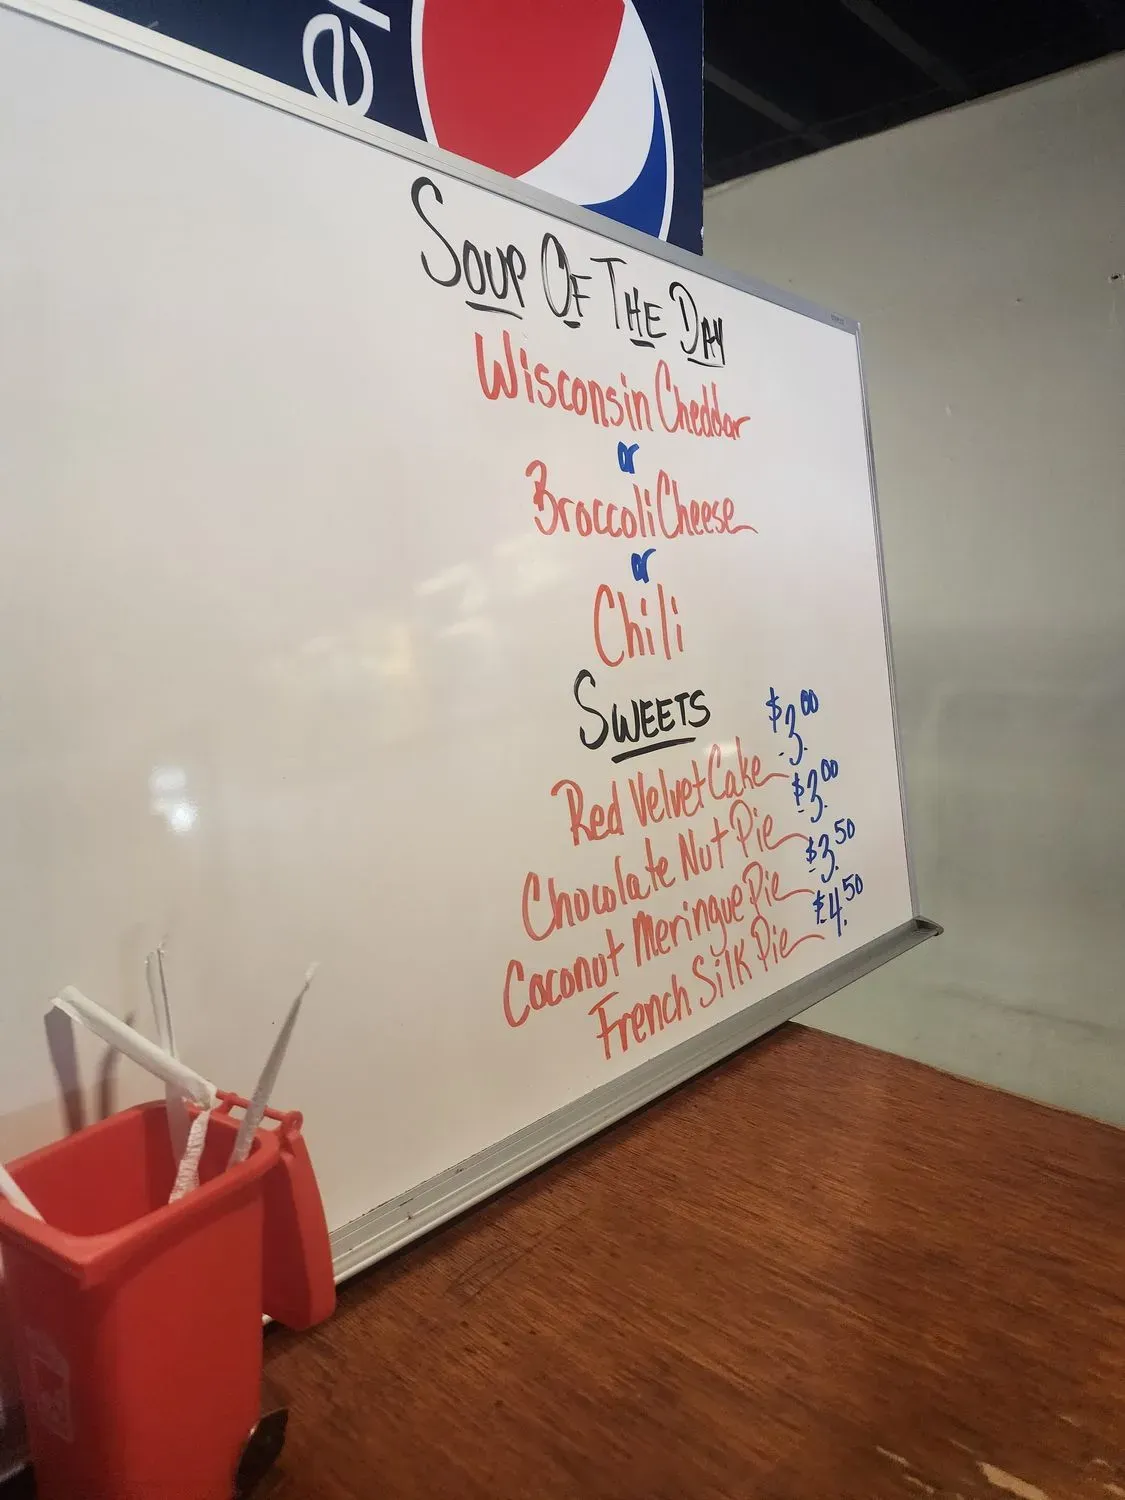 Soup Of The Day
Wisconsin Cheddar
or
Broccoli Cheese
or
Chili
Sweets
Red Velvet Cake $3.00
Chocolate Nut Pie $3.00
Coconut Meringue Pie $3.50
French Silk Pie $4.50